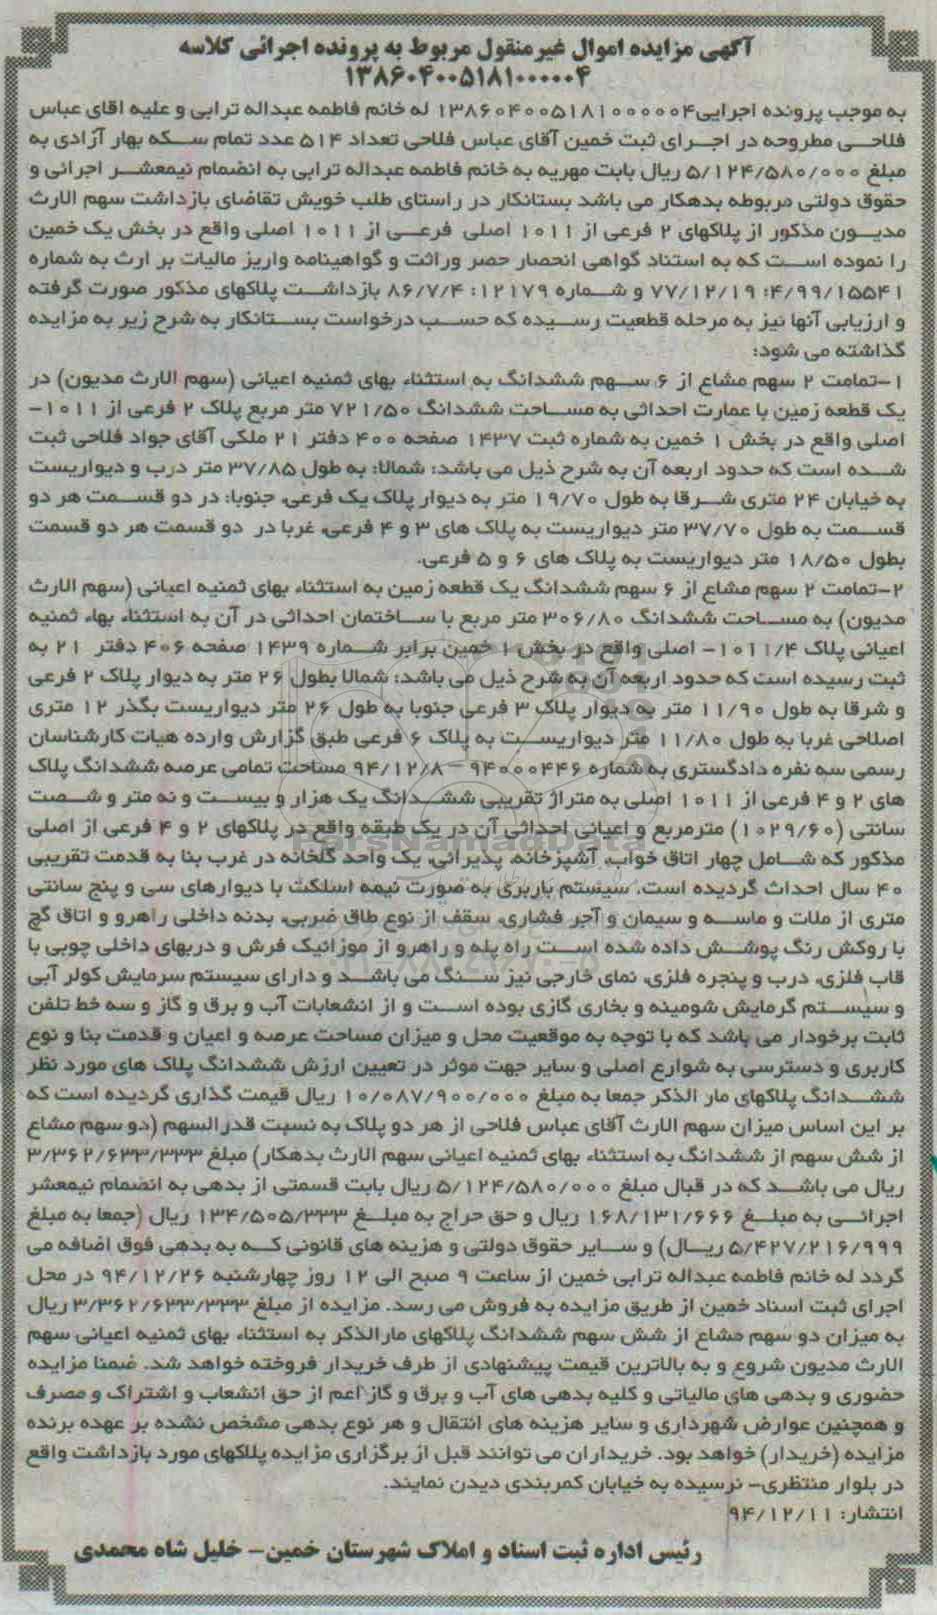 آگهی مزایده اموال غیرمنقول مربوط به پرونده اجرائی کلاسه
۱۳۸۶۰۴۰۰۵۱۸۱۰۰۰۰۰۴
به موجب پرونده اجرایی۱۳۸۶۰۴۰۰۵۱۸۱۰۰۰۰۰۴ له خانم فاطمه عبداله ترابی و علیه اقای عباس
فلاحی مطروحه در اجرای ثبت خمین آقای عباس فلاحی تعداد ۵۱۴ عدد تمام سکه بهار آزادی به
مبلغ ۵/۱۲۴/۵۸۰/۰۰۰ ریال بابت مهریه به خانم فاطمه عبداله ترابی به انضمام نیمعشر اجرائی و
حقوق دولتی مربوطه بدهکار می باشد بستانکار در راستای طلب خویش تقاضای بازداشت سهم الارث
مدیون مذکور از پلاکهای ۲ فرعی از ۱۰۱۱ اصلی فرعی از ۱۰۱۱ اصلی واقع در بخش یک خمین
را نموده است که به استناد گواهی انحصار حصر وراثت و گواهینامه واریز مالیات بر ارث به شماره
۴/۹۹/۱۵۵۴۱: ۷۷/۱۲/۱۹ و شماره ۱۲۱۷۹: ۸۶/۷/۴ بازداشت پلاکهای مذکور صورت گرفته
و ارزیابی آنها نیز به مرحله قطعیت رسیده که حسب درخواست بستانکار به شرح زیر به مزایده
گذاشته می شود:
۱-تمامت ۲ سهم مشاع از ۶ سهم ششدانگ به استثناء بهای ثمنیه اعیانی (سهم الارث مدیون) در
یک قطعه زمین با عمارت احداثی به مساحت ششدانگ ۷۲۱/۵۰ متر مربع پلاک ۲ فرعی از ۱۰۱۱-
اصلی واقع در بخش ۱ خمین به شماره ثبت ۱۴۳۷ صفحه ۴۰۰ دفتر ۲۱ ملکی آقای جواد فلاحی ثبت
شده است که حدود اربعه آن به شرح ذیل می باشد: شمالا: به طول ۳۷/۸۵ متر درب و دیواریست
به خیابان ۲۴ متری شرقا به طول ۱۹/۷۰ متر به دیوار پلاک یک فرعی، جنوبا: در دو قسمت هر دو
قسمت به طول ۳۷/۷۰ متر دیواریست به پلاک های ۳ و ۴ فرعی، غربا در دو قسمت هر دو قسمت
بطول ۱۸/۵۰ متر دیواریست به پلاک های ۶ و ۵ فرعی.
۲-تمامت ۲ سهم مشاع از ۶ سهم ششدانگ یک قطعه زمین به استثناء بهای ثمنیه اعیانی (سهم الارث
مدیون) به مساحت ششدانگ ۳۰۶/۸۰ متر مربع با ساختمان احداثی در آن به استثناء بهاء ثمنیه
اعیانی پلاک ۱۰۱۱/۴- اصلی واقع در بخش ۱ خمین برابر شماره ۱۴۳۹ صفحه ۴۰۶ دفتر ۲۱ به
ثبت رسیده است که حدود اربعه آن به شرح ذیل می باشد: شمالا بطول ۲۶ متر به دیوار پلاک ۲ فرعی
و شرقا به طول ۱۱/۹۰ متر به دیوار پلاک ۳ فرعی جنوبا به طول ۲۶ متر دیواریست بگذر ۱۲ متری
اصلاحی غربا به طول ۱۱/۸۰ متر دیواریست به پلاک ۶ فرعی طبق گزارش وارده هیات کارشناسان
رسمی سه نفره دادگستری به شماره ۹۴۰۰۰۴۴۶ – ۹۴/۱۲/۸ مساحت تمامی عرصه ششدانگ پلاک
های ۲ و ۴ فرعی از ۱۰۱۱ اصلی به متراژ تقریبی ششدانگ یک هزار و بیست و نه متر و شصت
سانتی (۱۰۲۹/۶۰) مترمربع و اعیانی احداثی آن در یک طبقه واقع در پلاکهای ۲ و ۴ فرعی از اصلی
مذکور که شامل چهار اتاق خواب، آشپزخانه، پذیرائی، یک واحد گلخانه در غرب بنا به قدمت تقریبی
۴۰ سال احداث گردیده است. سیستم باربری به صورت نیمه اسلکت با دیوارهای سی و پنج سانتی
متری از ملات و ماسه و سیمان و آجر فشاری، سقف از نوع طاق ضربی، بدنه داخلی راهرو و اتاق گچ
با روکش رنگ پوشش داده شده است راه پله و راهرو از موزائیک فرش و دربهای داخلی چوبی با
قاب فلزی، درب و پنجره فلزی، نمای خارجی نیز سنگ می باشد و دارای سیستم سرمایش کولر آبی
و سیستم گرمایش شومینه و بخاری گازی بوده است و از انشعابات آب و برق و گاز و سه خط تلفن
ثابت برخودار می باشد که با توجه به موقعیت محل و میزان مساحت عرصه و اعیان و قدمت بنا و نوع
کاربری و دسترسی به شوارع اصلی و سایر جهت موثر در تعیین ارزش ششدانگ پلاک های مورد نظر
ششدانگ پلاکهای مار الذکر جمعا به مبلغ ۱۰/۰۸۷/۹۰۰/۰۰۰ ریال قیمت گذاری گردیده است که
بر این اساس میزان سهم الارث آقای عباس فلاحی از هر دو پلاک به نسبت قدرالسهم (دو سهم مشاع
از شش سهم از ششدانگ به استثناء بهای ثمنیه اعیانی سهم الارث بدهکار) مبلغ ۳/۳۶۲/۶۳۳/۳۳۳
ریال می باشد که در قبال مبلغ ۵/۱۲۴/۵۸۰/۰۰۰ ریال بابت قسمتی از بدهی به انضمام نیمعشر
اجرائی به مبلغ ۱۶۸/۱۳۱/۶۶۶ ریال و حق حراج به مبلغ ۱۳۴/۵۰۵/۳۳۳ ریال (جمعا به مبلغ
۵/۴۲۷/۲۱۶/۹۹۹ ریال) و سایر حقوق دولتی و هزینه های قانونی که به بدهی فوق اضافه می
گردد له خانم فاطمه عبداله ترابی خمین از ساعت ۹ صبح الی ۱۲ روز چهارشنبه ۹۴/۱۲/۲۶ در محل
اجرای ثبت اسناد خمین از طریق مزایده به فروش می رسد. مزایده از مبلغ ۳/۳۶۲/۶۳۳/۳۳۳ ریال
به میزان دو سهم مشاع از شش سهم ششدانگ پلاکهای مارالذکر به استثناء بهای ثمنیه اعیانی سهم
الارث مدیون شروع و به بالاترین قیمت پیشنهادی از طرف خریدار فروخته خواهد شد. ضمنا مزایده
حضوری و بدهی های مالیاتی و کلیه بدهی های آب و برق و گاز اعم از حق انشعاب و اشتراک و مصرف
و همچنین عوارض شهرداری و سایر هزینه های انتقال و هر نوع بدهی مشخص نشده بر عهده برنده
مزایده (خریدار) خواهد بود. خریداران می توانند قبل از برگزاری مزایده پلاکهای مورد بازداشت واقع
در بلوار منتظری- نرسیده به خیابان کمربندی دیدن نمایند.
انتشار: ۹۴/۱۲/۱۱
رئیس اداره ثبت اسناد و املاک شهرستان خمین- خلیل شاه محمدی
ParsNamadData